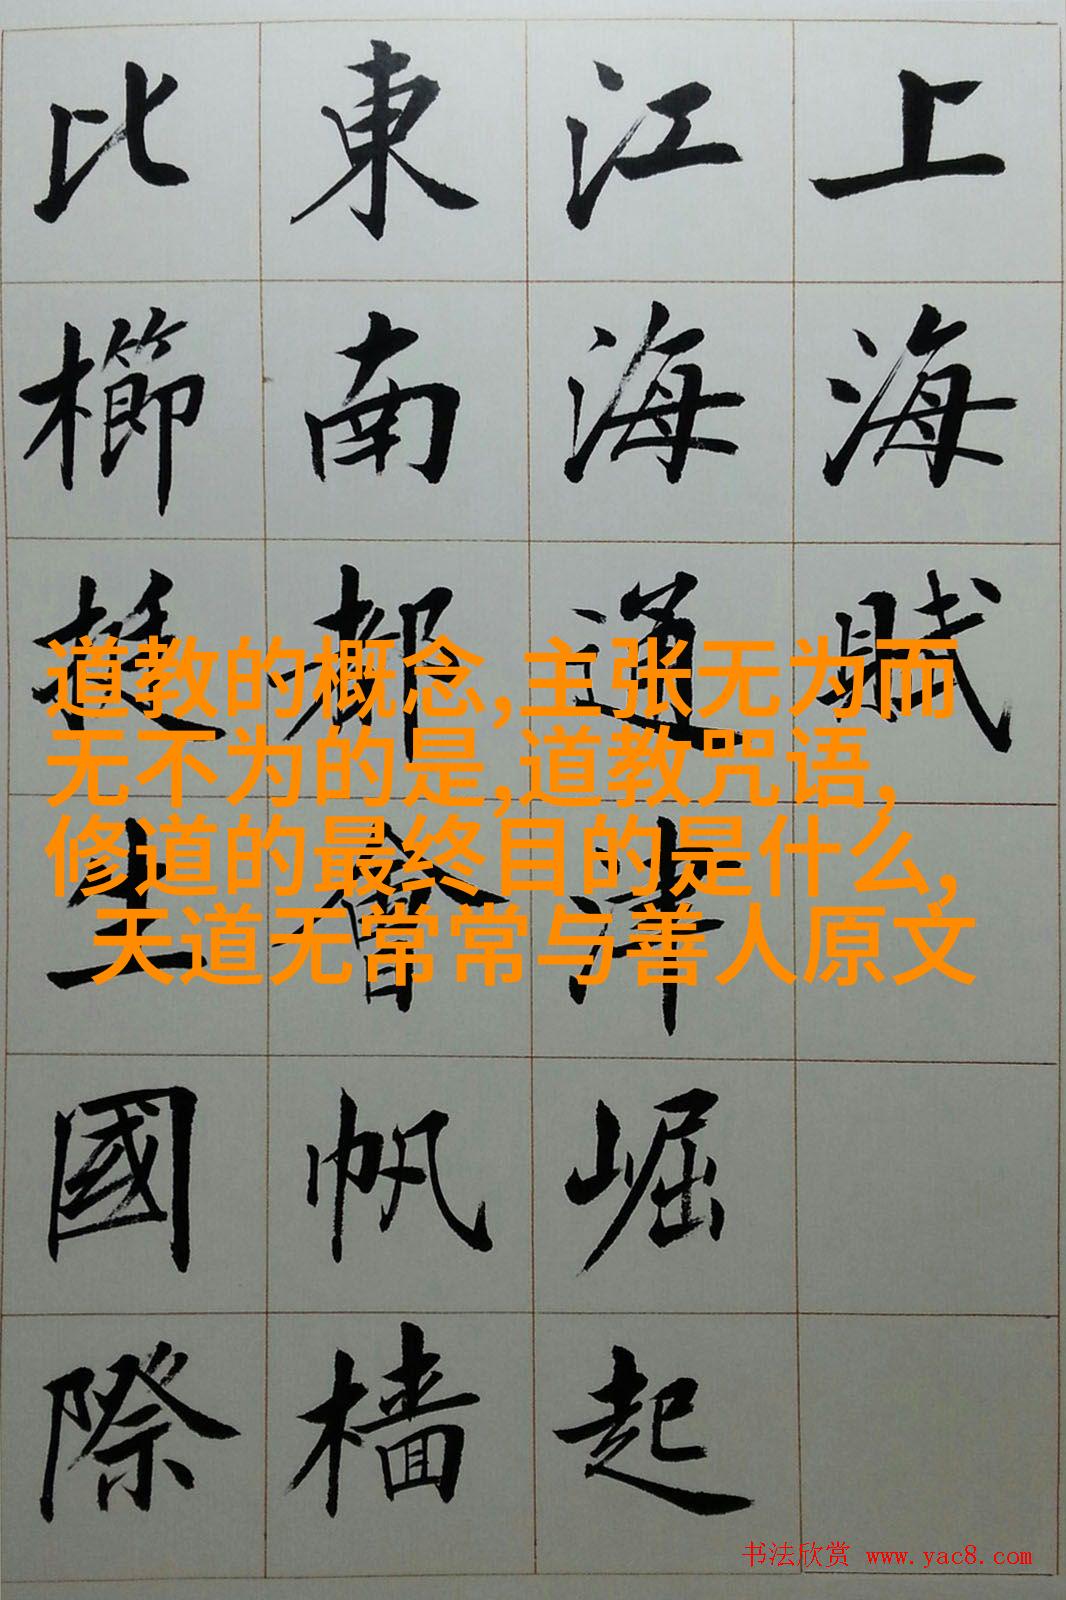 上海賦
江海通津崛起
東南都會帆檣
比櫛挺生國際
道教的概念,主张无为而
无不为的是,道教咒语,
修道的最终目的是什么,
天道无常常与善人原文
书法欣赏 www.yac8.com